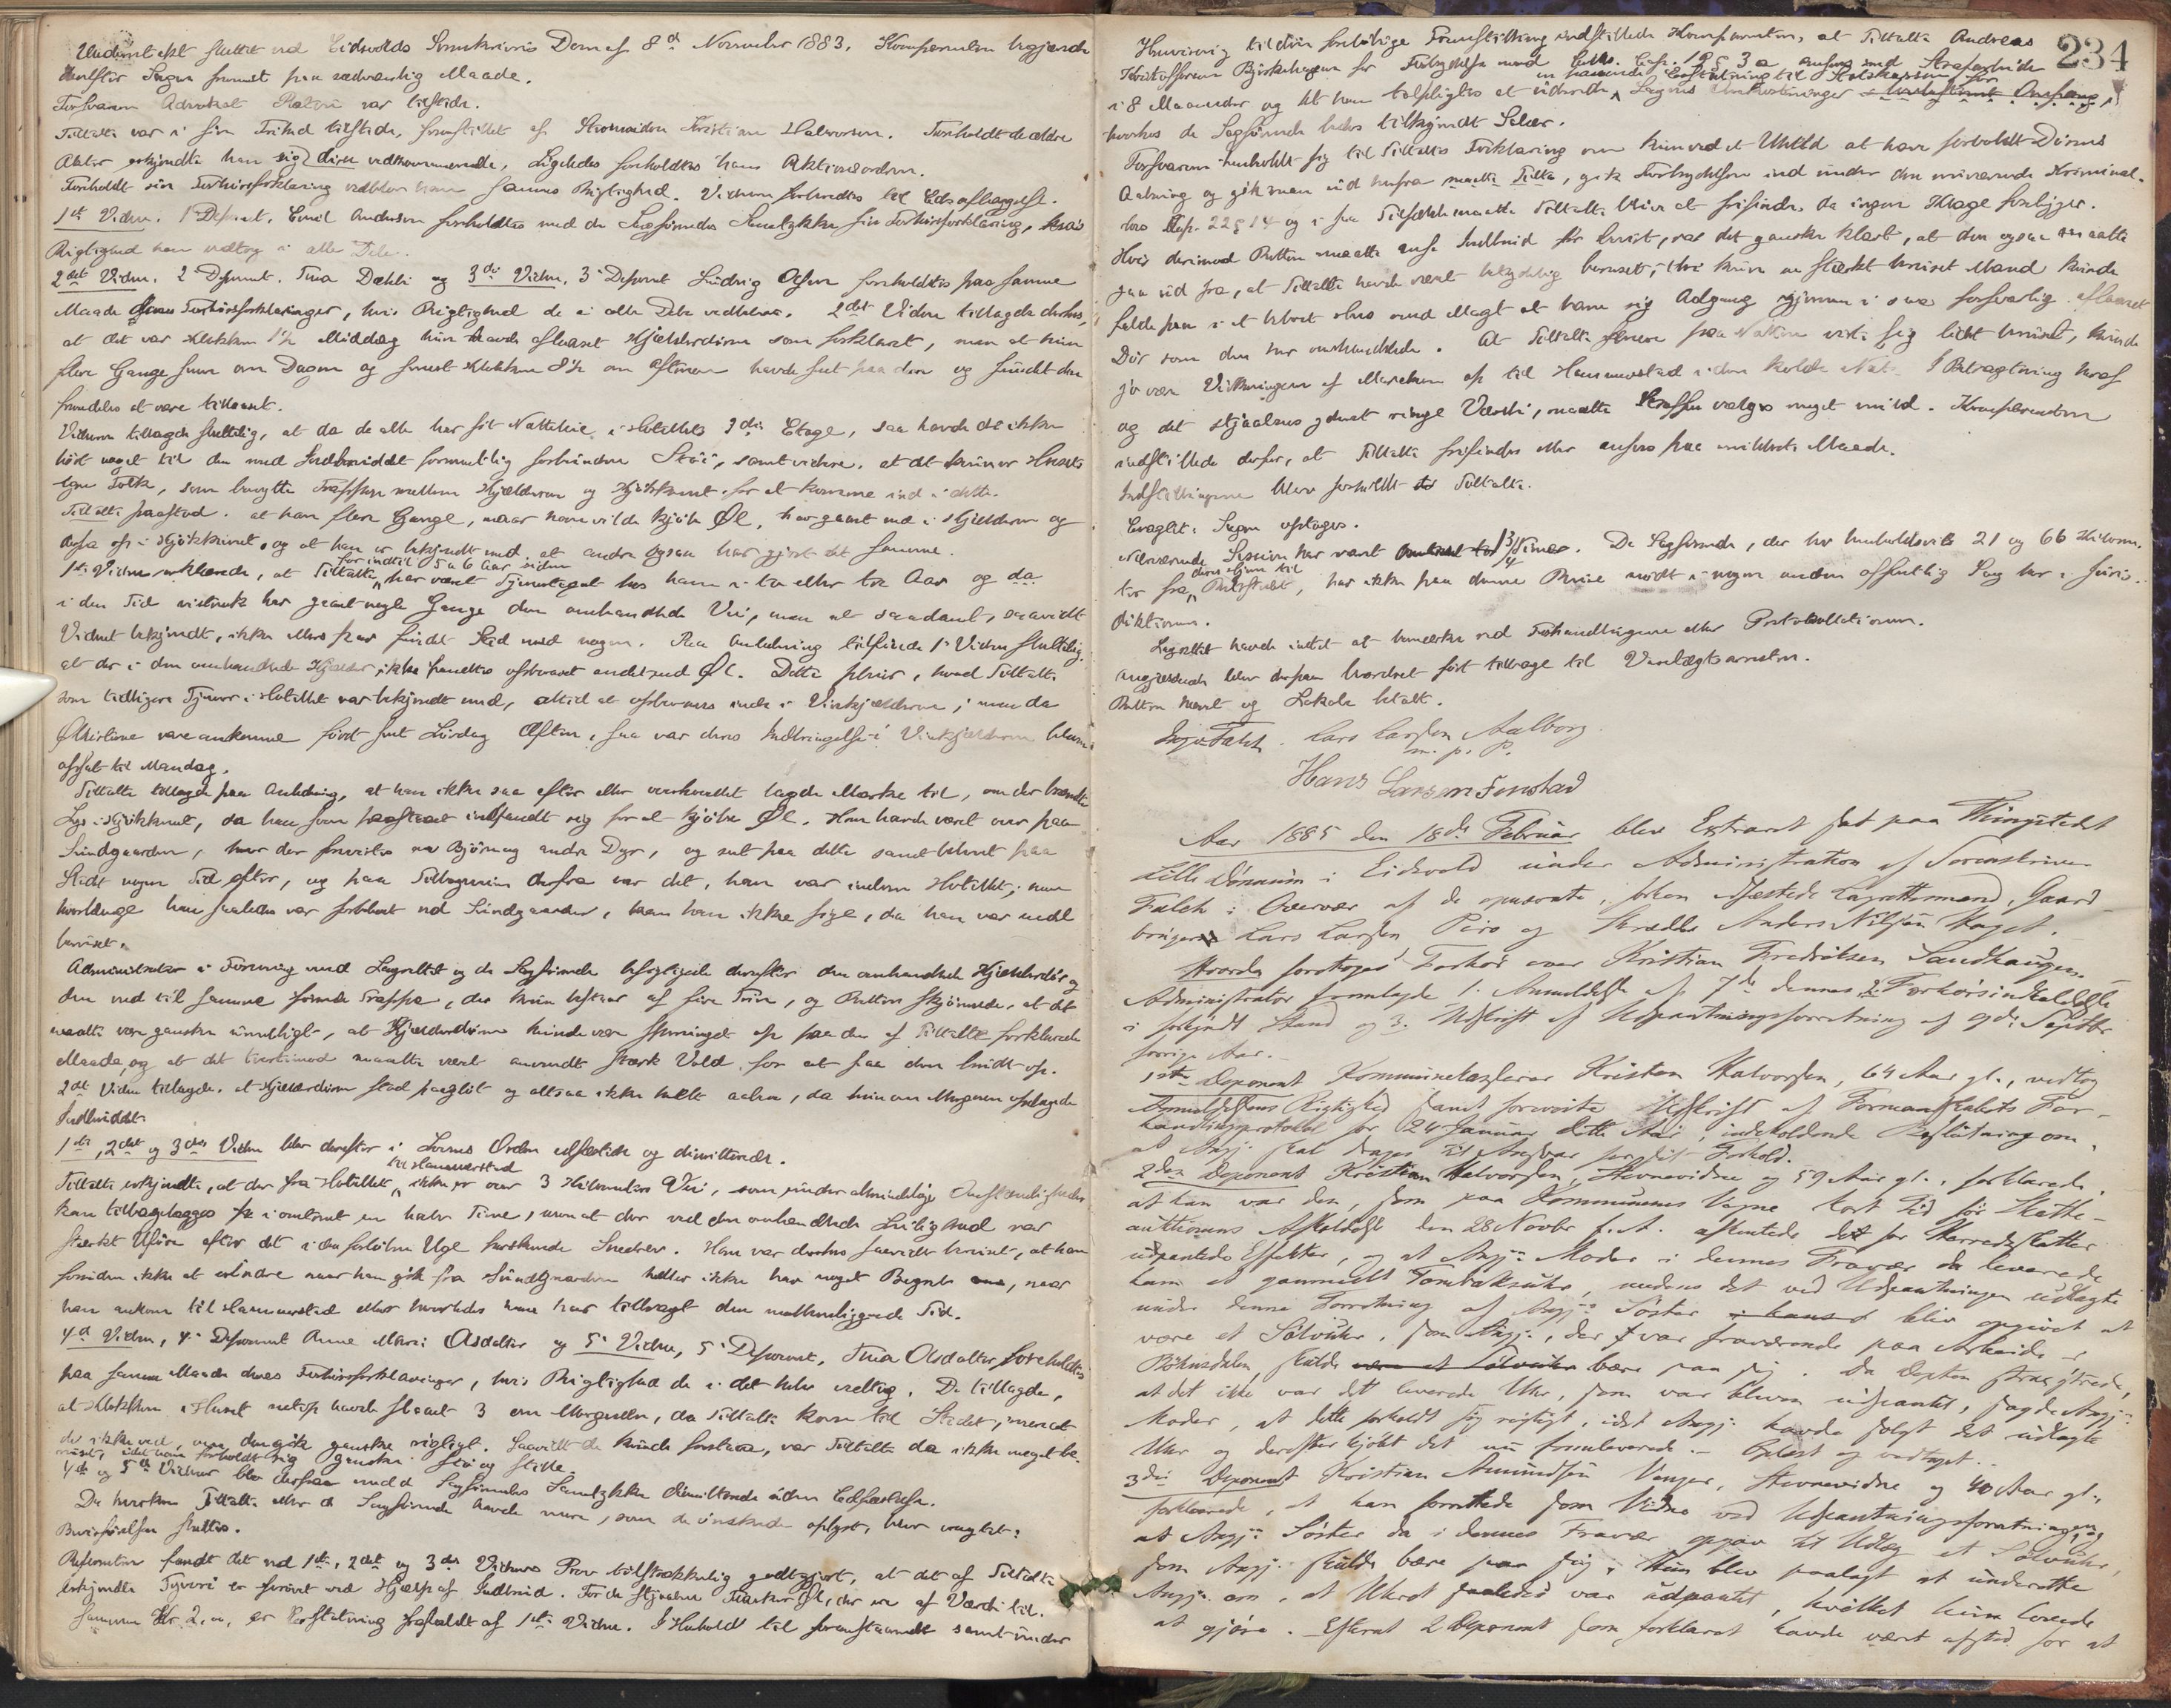 Underretsret sluttet ved Eidsvolds Sorenskriveris Dom af 8de November 1883. Komparenten begjærede
herefter Sagen fremmet paa sædvanlig Maade.
Forsvareren Advokat Platou var tilstede.
Tiltalte var i sin Frihed tilstede, fremstillet af Kristian Halvorsen. Foreholdt de ældre
Akter erkjendte han sig disse vedkommende. Ligeledes foreholdtes ham Aktionsordren.
Foreholdt sin Forhørsforklaring vedblev han sammes Rigtighed. Vidnerne forberedtes til Edsaflæggelse.
1ste Vidne. 1 Deponent, Emil Andersen foreholdtes med de Sagførendes Samtykke sin Forhørsforklaring, hvis
Rigtighed han vedtog i alle Dele.
2det Vidne, 2 Deponent, Tina Dæhli og 3die Vidne, 3 Deponent Ludvig Olsen foreholdtes paa samme
Maade deres Forhørsforklaringer, hvis Rigtighed de i alle Dele vedbleve. 2det Vidne tillagde derhos,
at det var Klokken 1½ Middag hun havde aflaaset Kjælderdøren som forklaret, men at hun
flere Gange senere om Dagen og senest Klokken 8½ om Aftenen havde seet paa den og fundet den
fremdeles at være tillaaset.
Vidnerne tillagde sluttelig, at da de alle har sit Natteleie i Hotellets 3die Etage, saa havde de ikke
hørt noget til den med Indbruddet formentlig forbundne Støi, samt videre, at det kun er Husets
egne Folk, som benytte Trappen mellem Kjælderen og Kjøkkenet for at komme ind i dette.
Tiltalte paastod, at han flere Gange, naar han vilde kjøbe Øl, har gaaet ned i Kjælderen og
derfra op i Kjøkkenet, og at han er bekjendt med, at andre ogsaa har gjort det samme.
1ste Vidne erklærede, at Tiltalte for indtil 5 a 6 Aar siden har været Tjenestegut hos ham i to eller tre Aar og da
i den Tid vistnok har gaaet nogle Gange den omhandlede Vei, men at saadant, saavidt
Vidnet bekjendt, ikke ellers har fundet Sted med nogen. Paa Anledning tilføiede 1 Vidne sluttelig,
at der i den omhandlede Kjælder ikke fandtes opbevaret andet end Øl. Dette pleier, hvad Tiltalte
som tidligere Tjener i Hotellet var bekjendt med, altid at opbevares inde i Vinkjælderen; men da
Ølkisterne vare ankomne først sent Lørdag Aften, saa var deres Indbringelse i Vinkjælderen bleven
opsat til Mandag.
Tiltalte tillagde paa Anledning, at han ikke saa efter eller overhovedet lagde Mærke til, om der brændte
Lys i Kjøkkenet, da han som paastaaet indfandt sig for at kjøbe Øl. Han havde været over paa
Sundgaarden, hvor der forevistes en Bjørn og andre Dyr, og set paa dette samt ventet paa
Stedt nogen Tid efter, og paa Tilbageveien derfra var det, han var indom Hotellet; men
hvorlænge han saaledes var forblevet ved Sundgaarden, kan han ikke sige, da han var endel
beruset.
Administrator i Forening med Lagrettet og de Sagførende besigtigede derefter den omhandlede Kjælderdør og
den ned til samme førende Trappe, der kun bestaar af fire Trin, og Retten skjønnede, at det
maatte være ganske umuligt, at Kjælderdøren kunde være sprunget op paa den af Tiltalte forklarede
Maade, og at det tvertimod maatte været anvendt stærk Vold for at faa den brudt op.
2det Vidne tillagde, at Kjælderdøren stod paagløt og altsaa ikke helt aaben, da hun om Morgenen opdagede
Indbruddet.
1ste, 2det og 3die Vidne blev derefter i Lovens Orden edfæstede og dimitterede.
Tiltalte erkjendte, at der fra Hotellet til Hammerstad ikke er over 3 Kilometers Vei, som under almindelige Omstændigheder
kan tilbagelægges i omtrent en halv Time, men at der ved den omhandlede Leilighed var
stærkt Uføre efter det i den forløbne Uge herskende Snedrev. Han var derhos saavidt beruset, at han
foruden ikke at erindre naar han gik fra Sundgaarden heller ikke har noget Begreb om, naar
han ankom til Hammerstad eller hvorledes han har tilbragt den mellemliggende Tid.
4de Vidne, 4 Deponent Anne Marie Olsdatter og 5 Vidne, 5 Deponent, Tina Olsdatter foreholdtes
paa samme Maade deres Forhørsforklaringer, hvis Rigtighed de i det hele vedtog. De tillagde,
at Klokken i Huset netop havde slaaet 3 om Morgenen, da Tiltalte kom til Stedet, men at
de ikke ved, om den gik ganske rigtigt. Saavidt de kunde forstaa, var Tiltalte da ikke meget be-
ruset, idet han forholdt sig ganske stø og stille.
4de og 5te Vidner blev derpaa med de Sagførendes Samtykke dimitterede uden Edfæstelse.
Da hverken Tiltalte eller de Sagførende havde mere, som de ønskede oplyst, blev eragtet:
Bevisførelsen sluttes.
Aktor fandt det ved 1ste, 2det og 3die Vidners Prov tilstrækkelig godtgjort, at det af Tiltalte
erkjendte Tyveri er forøvet ved Hjælp af Indbrud. For de stjaalne Flasker Øl, der ere af Værdi til-
sammen Kr 2,00, er Erstatning frafaldt af 1ste Vidne. I Henhold til foranstaaende samt under
234
Henvisning til den foreløbige Fremstilling indstillede Komparenten, at Tiltalte Andreas
Kristoffersen Bjørkehagen for Forbrydelse mod Crlv. Cap. 19 § 3 a ansees med Strafarbeide
i 8 Maaneder og at han tilpligtes at udrede en passende Erstatning til Statskassen for Sagens Omkostninger i ubestemt Omfang,
hvorhos de Sagførende bedes tilkjendt Salær.
Forsvareren henholdt sig til Tiltaltes Forklaring om kun ved et Uheld at have forvoldt Dørens
Aabning og gik man ud herfra maatte Tilta, gik Forbrydelsen ind under den nuværende Kriminal-
lovs Cap. 22 § 14 og i saa Tilfælde maatte Tiltalte blive at frifinde, da ingen Klage foreligger.
Hvis derimod Retten maatte anse Indbrud for bevist, var det ganske klart, at den ogsaa maatte
gaa ud fra, at Tiltalte havde været betydelig beruset; thi kun en stærkt beruset Mand kunde
falde paa i et beboet Hus med Magt at bane sig Adgang gjennem i saa forsvarlig aflaaset
Dør som den her omhandlede. At Tiltalte senere paa Natten viste sig lidet beruset, kunde
jo være Virkningen af Marschen op til Hammerstad i den kolde Nat. I Betragtning heraf
og det stjaalnes yderst ringe Værdi, maatte Straffen vælges meget mild. Komparenten
indstillede derfor, at Tiltalte frifindes eller ansees paa mildeste Maade.
Indstillingerne blev foreholdt Tiltalte.
Eragtet: Sagen optages.
Nærværende Session har varet 1 3/4 Timer. De Sagførende, der har henholdsvis 21 og 66 Kilom.
ter fra deres Hjem til Retsstedet, har ikke paa denne Reise mødt i nogen anden offentlig Sag her i Juris-
diktionen.
Lagrettet havde intet at bemærke ved Forhandlingerne eller Protokollationen.
Angjældende blev derpaa beordret ført tilbage til Varetægtsarresten.
Retten hævet og Lokale betalt.
Inge Falck. Lars Larsen Aalborg
m. p. P.
Hans Larsen Finstad
Aar 1885 den 18de Februar blev Extraret sat paa Thingstedet
Lille Dønnum i Eidsvold under Administration af Sorenskriver
Falck i Overvær af de opnævnte, forhen edfæstede Lagrettesmænd, Gaard-
brugerne Lars Larsen Piro og Skrædder Anders Nilsen Haget.
Hvorda foretoges Forhør over Kristian Fredriksen Sandhaugen.
Administrator fremlagde 1. Anmeldelse af 7de dennes 2. Forhørsindkaldelse
i forkyndt Stand og 3. Udskrift af Udpantningsforretning af 9de Septbr
forrige Aar.
1ste Deponent Kommunekasserer Kristen Halvorsen, 64 Aar gl., vedtog
Anmeldelsens Rigtighed samt foreviste Udskrift af Formandskabets For-
handlingsprotokol for 24 Januar dette Aar, indeholdende Beslutning om,
at Angj. skal drages til Ansvar for sit Forhold.
2den Deponent Kristian Halvorsen, Stevnevidne og 59 Aar gl., forklarede,
at han var den, som paa Kommunens Vegne kort Tid før Skatte-
auktionens Afholdelse den 28 Novbr f. A. afhentede det for Herredsskatter
udpantede Effekter, og at Angj:s Moder i dennes Fravær da leverede
ham et gammelt Tombaksuhr, medens det ved Udpantningen udlagte
under denne Forretning af Angj:s Søster i hans blev opgivet at
være et Sølvuhr, som Angj., der var fraværende paa Arbeide i
Bøhnsdalen, skulde være et Sølvuhr bære paa sig. Da Depten strax ytrede,
at det ikke var det leverede Uhr, som var bleven udpantet, sagde Angj:s
Moder, at dette forholdt sig rigtigt, idet Angj. havde solgt det udlagte
Uhr og derefter kjøbt det nu fremleverede. - Oplæst og vedtaget.
3die Deponent Kristian Amundsen Venger, Stevnevidne og 40 Aar gl.,
forklarede, at han forrettede som Vidne ved Udpantningsforretningen, og
at Angj:s Søster da i dennes Fravær opgav til Udlæg et Sølvuhr,
som Angj. skulde bære paa sig; Hun blev paalagt at underrette
Angj. om, at Uhret saaledes var udpantet, hvilket hun lovede
at gjøre. Efterat 2 Deponent som forklaret havde været afsted for at